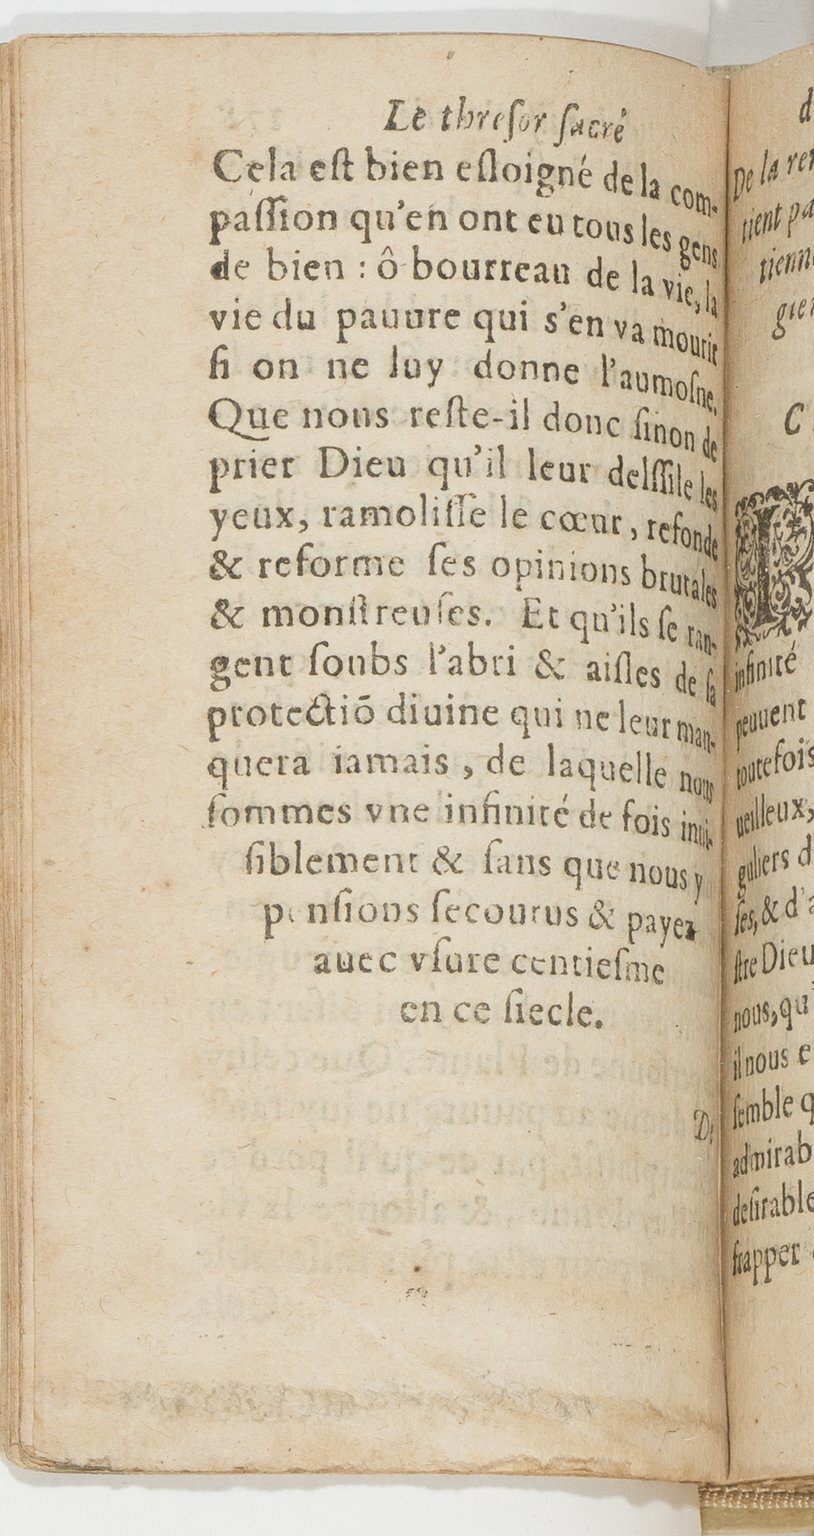 Le threſor ſacré
Cela eſt bien eſloigné de la com-
paſſion qu'en ont eu tous les gens
de bien : ô bourreau de la vie, la
vie du pauure qui s'en va mourir
ſi on ne luy donne l'aumoſne.
Que nous reſte-il donc ſinon de
prier Dieu qu'il leur delſſile les
yeux, ramoliſſe le cœur, refonde
& reforme ſes opinions brutales
& monſtreuſes. Et qu'ils ſe ran-
gent ſoubs l'abri & aiſles de ſa
protectiõ diuine qui ne leur man-
quera iamais, de laquelle nous
ſommes vne infinité de fois inui-
ſiblement & ſans que nous y
penſions ſecourus & payez
auec vſure centieſme
en ce ſiecle.
De
d
De la ren
tient pa
tienn
gier
C
infinité
peuuent
toutefois
ueilleux,
guliers d
ſes, & d'a
ſtre Dieu
nous, qu'
il nous e
ſemble q
admirab
deſirable
frapper